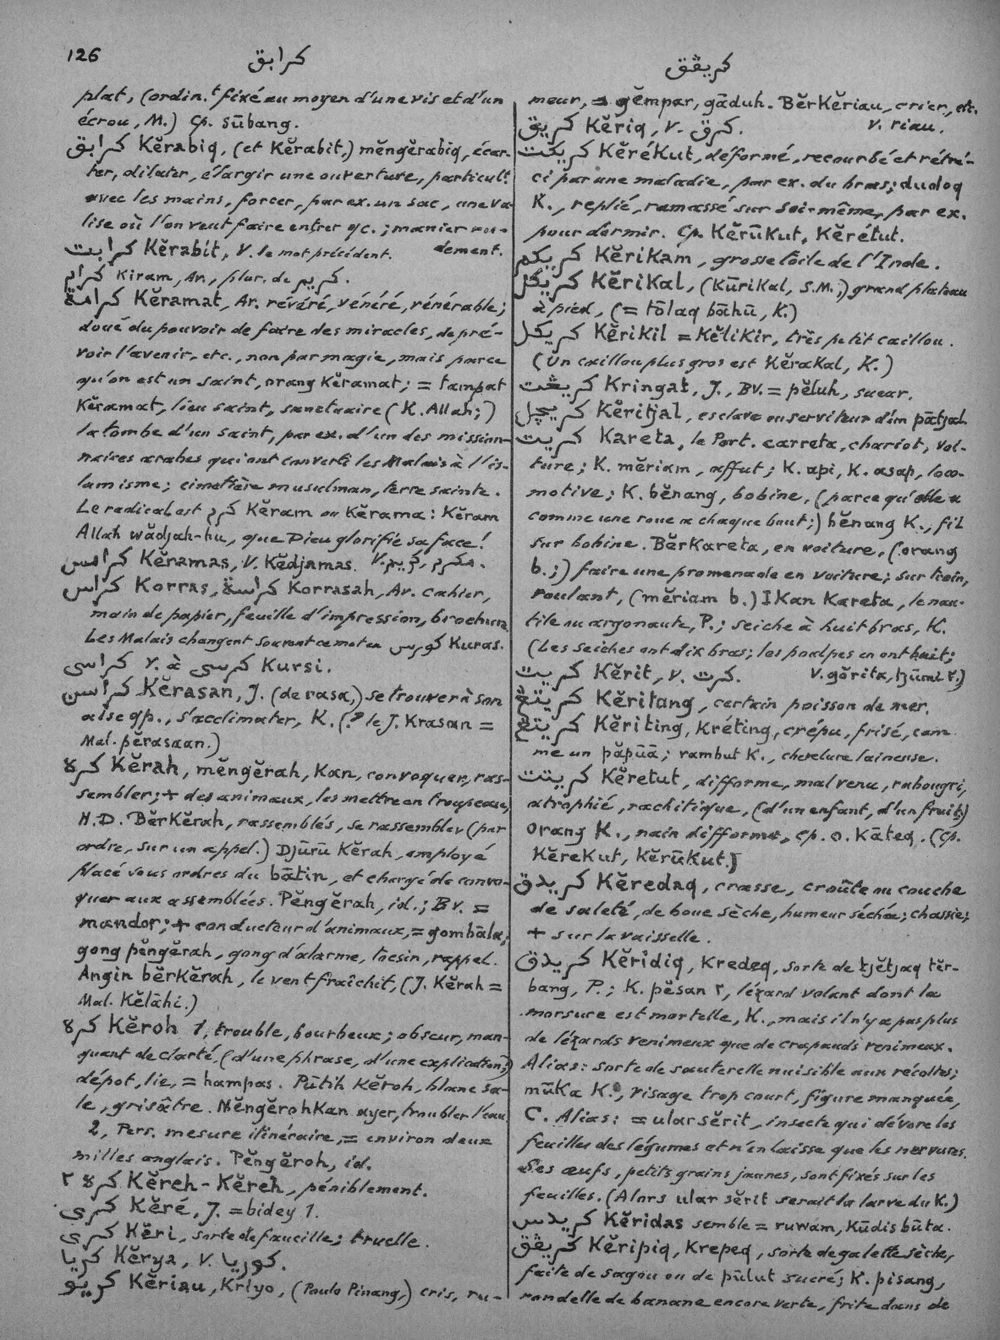 126
كرابق
كريڤق
plat, (ordin.t fixé au moyen d'une vis et d'un
écrou, M.) Cp. sūbang.
كرابق Kĕrabiq, (et Kĕrabit,) mĕngĕrabiq, écar-
ter, dilater, élargir une ouverture, particult
avec les mains, forcer, par ex. un sac, une va-
lise où l'on veut faire entrer qc.; manier
dement.
كرابت Kĕrabit, V. le mot précédent.
كرام Kiram, Ar., plur. de كريم.
كرامة Kĕramat, Ar. révéré, vénéré, vénérable;
doué du pouvoir de faire des miracles, de pré-
voir l'avenir, etc., non par magie, mais parce
qu'on est un saint, orang Kĕramat; = tampat
Kĕramat, lieu saint, sanctuaire (K. Allah;)
la tombe d'un saint, par ex. d'un des mission-
naires arabes qui ont converti les Malais à l'is-
lamisme; cimetière musulman, terre sainte.
Le radical est كرم Kĕram ou Kĕrama: Kĕram
Allah wădjah-hu, que Dieu glorifie sa face!
كرامس Kĕramas, V. Kĕdjamas. V.
كراس Korras, كراسة Korrasah, Ar. cahier,
main de papier, feuille d'impression, brochure.
Les Malais changent souvent ce mot en كورس Kuras.
كراسى V. à كرسى Kursi.
كراسن Kĕrasan, J. (de rasa,) se trouver à son
aise qp., s'acclimater, K. (? le J. Krasan =
Mal. pĕrasaan.)
كره Kĕrah, mĕngĕrah, Kan, convoquer, ras-
sembler; + des animaux, les mettre en troupeau,
H.D. BĕrKĕrah, rassemblés, se rassembler (par
ordre, sur un appel.) Djūrū Kĕrah, employé
placé sous ordres du bātin, et chargé de convo-
quer aux assemblées. Pĕngĕrah, id.; Bv. =
mandor; + conducteur d'animaux, = gombāla;
gong pĕngĕrah, gong d'alarme, tocsin, rappel.
Angin bĕrKĕrah, le vent fraîchit, (J. Kĕrah =
Mal. Kĕlāhi.)
كره Kĕroh 1, trouble, bourbeux; obscur, man-
quant de clarté, (d'une phrase, d'une explication;)
dépôt, lie, = hampas. Pūtih Kĕroh, blanc sa-
le, grisâtre. MĕngĕrohKan ayer, troubler l'eau.
2, Pers. mesure itinéraire, = environ deux
milles anglais. Pĕngĕroh, id.
كره ٢ Kĕreh-Kĕreh, péniblement.
كرى Kĕré, J. = bidey 1.
كرى Kĕri, sorte de faucille; truelle.
كريا Kĕrya, V. كوريا.
كريو Kĕriau, Kriyo, (Poulo Pinang,) cris, ru-
meur, = gĕmpar, gāduh. BĕrKĕriau, crier, etc.
V. riau.
كريق Kĕriq, V. كرق.
كريكت KĕréKut, déformé, recourbé et rétré-
ci par une maladie, par ex. du bras; duduq
K., replié, ramassé sur soi-même, par ex.
pour dormir. Cp. KĕrūKut, Kĕrétut.
كريكم KĕriKam, grosse toile de l'Inde.
كريكل KĕriKal, (KūriKal, S.M.,) grand plateau
à pied, (= tālaq bāhū, K.)
كريكل KĕriKil = KĕliKir, très petit caillou.
(Un caillou plus gros est KĕraKal, K.)
كريڠت Kringat, J., BV. = pĕluh, sueur.
كريچل Kĕritjal, esclave ou serviteur d'un pātjal.
كريت Kareta, le Port. carreta, chariot, voi-
ture; K. mĕriam, affut; K. api, K. asap, loco-
motive; K. bĕnang, bobine, (parce qu'elle a
comme une roue a chaque bout;) bĕnang K., fil
sur bobine. BĕrKareta, en voiture, (orang
b.;) faire une promenade en voiture; sur train,
roulant, (mĕriam b.) IKan Kareta, le nau-
tile ou argonaute, P.; seiche à huit bras, K.
(Les seiches ont dix bras; les poulpes en ont huit;
V. gŏrita,
كريت Kĕrit, V. كرت.
كريتڠ Kĕritang, certain poisson de mer.
كريتڠ Kĕriting, Kréting, crépu, frisé, com-
me un păpūā; rambut K., chevelure laineuse.
كريتت Kĕretut, difforme, mal venu, rabougri,
atrophié, rachitique, (d'un enfant, d'un fruit;)
orang K., nain difforme, Cp. o. Kāteq. (Cp.
KĕreKut, KĕrūKut.)
كريدق Kĕredaq, crasse, croûte ou couche
de saleté, de boue sèche, humeur séchée; chassie;
+ sur la vaisselle.
كريدق Kĕridiq, Kredeq, sorte de tjĕtjaq tĕr-
bang, P.; K. pĕsan ٢, lézard volant dont la
morsure est mortelle, K., mais il n'y a pas plus
de lézards venimeux que de crapauds venimeux.
Alias: sorte de sauterelle nuisible aux récoltes;
mūKa K., visage trop court, figure manquée,
C. Alias: = ular sĕrit, insecte qui dévore les
feuilles des légumes et n'en laisse que les nervures.
Ses œufs, petits grains jaunes, sont fixés sur les
feuilles. (Alors ular sĕrit serait la larve du K.)
كريدس Kĕridas semble = ruwam, Kūdis būta.
كريڤق Kĕripiq, Krepeq, sorte de galette sèche,
faite de sagou ou de pūlut sucré; K. pisang,
rondelle de banane encore verte, frite dans de